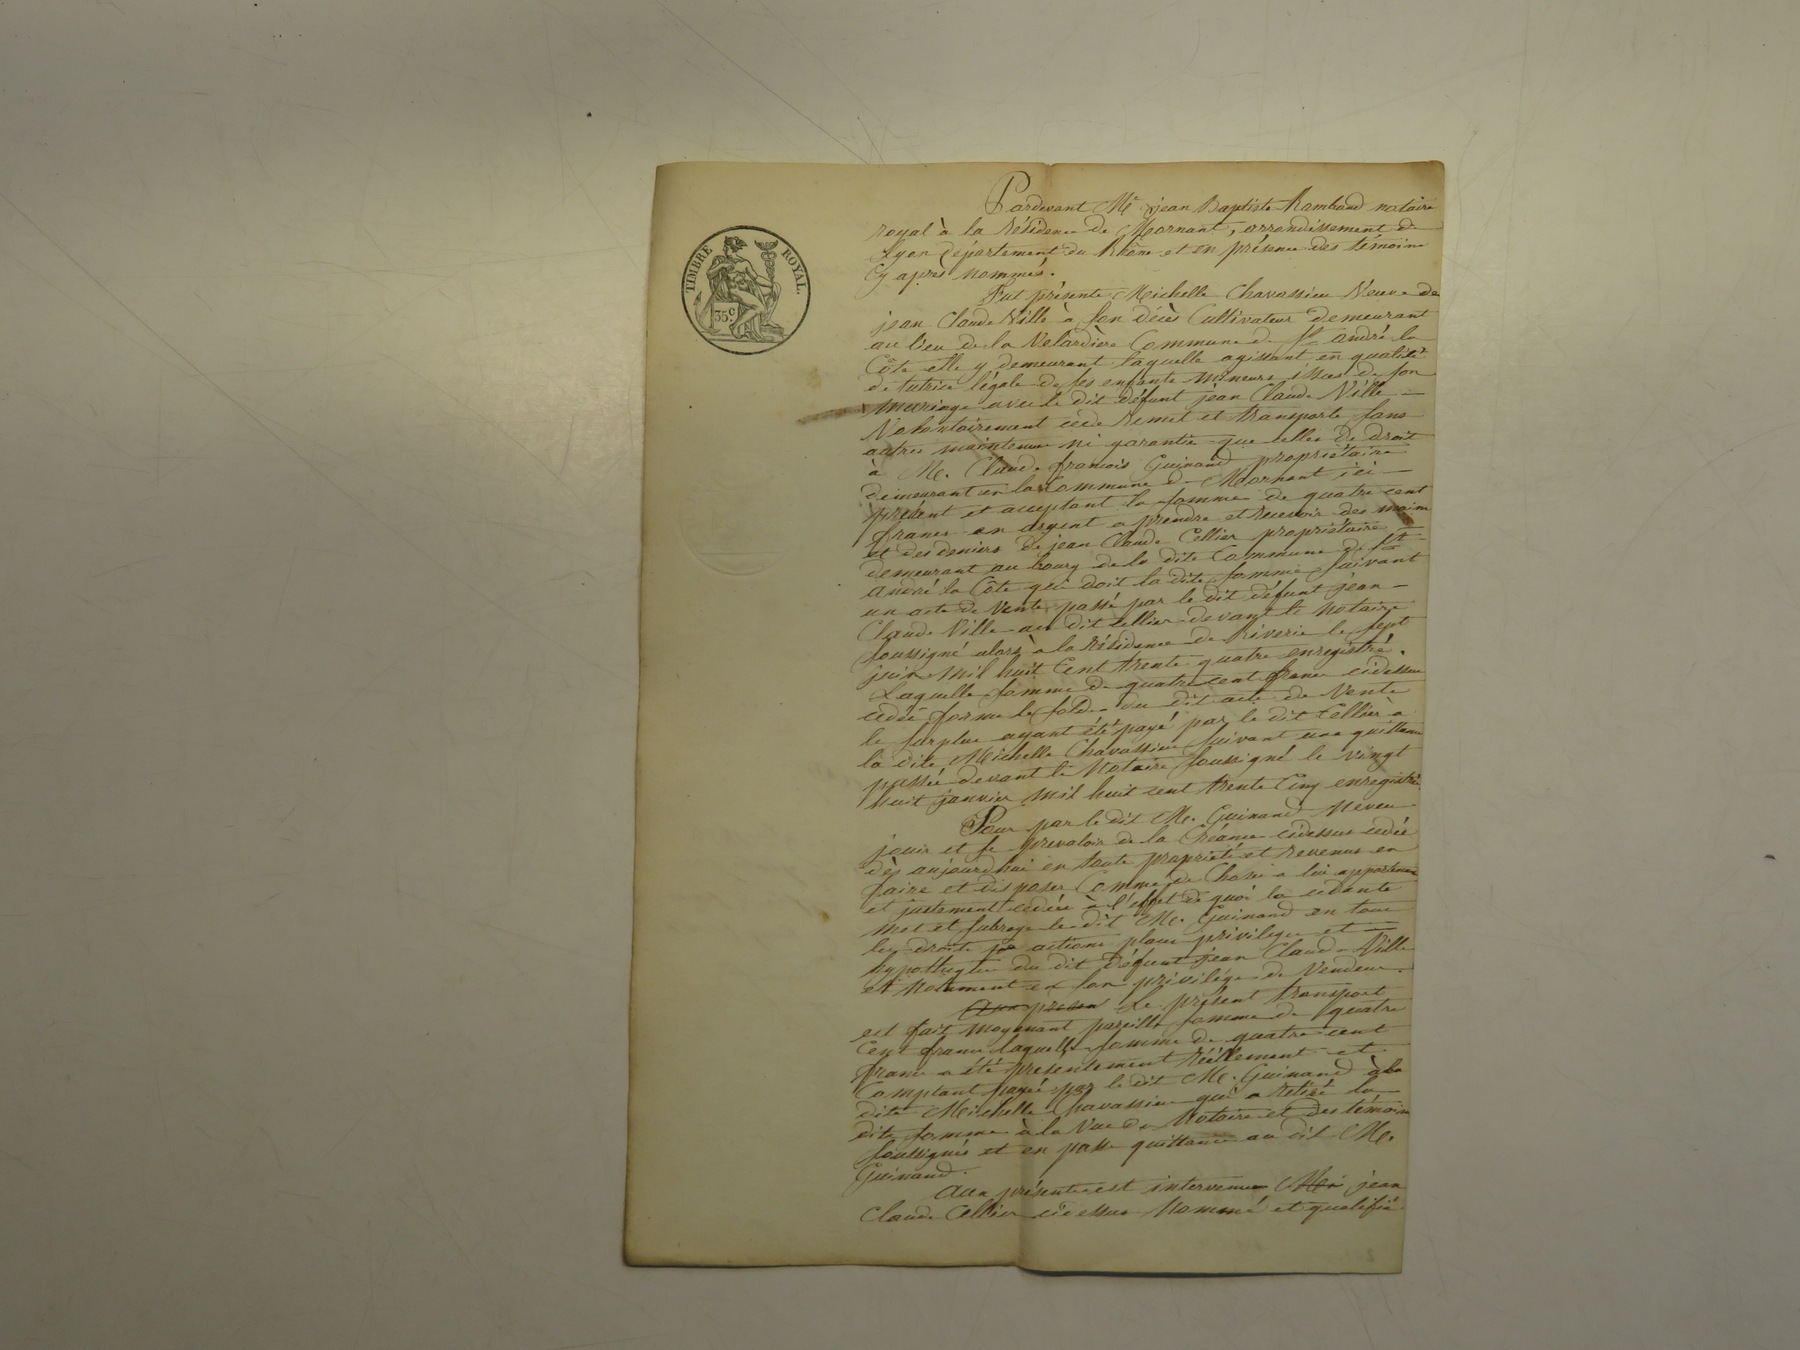 TIMBRE ROYAL.
35 c.
Pardevant Me jean Baptiste Rambaud notaire
royal à la résidence de Mornant, arrondissement de
Lyon département du Rhône et en présence des témoins
Cy après nommés.
Fut présente Michelle Chavassieu Veuve de
jean Claude Ville à son décès Cultivateur demeurant
au lieu de la Velardière Commune de St andré la
Côte elle y demeurant laquelle agissant en qualité
de tutrice légale de ses enfants mineurs issus de son
mariage avec le dit défunt jean Claude Ville
Volontairement cède remet et transporte sans
autres maintenue ni garantie que celles de droit
à M. Claude francois Guinand propriétaire
demeurant en la Commune de Mornant ici
présent et acceptant la somme de quatre cent
francs en argent a prendre et recevoir des mains
et des deniers de jean Claude Cellier propriétaire
demeurant au bourg de la dite Commune de St
andré la Côte qui doit la dite somme suivant
un acte de Vente passé par le dit défunt jean
Claude Ville au dit Cellier devant le Notaire
soussigné alors à la résidence de Riverie le sept
juin mil huit Cent trente quatre enregistré.
Laquelle somme de quatre cent francs cidessus
cédée forme le solde du dit acte de Vente
le surplus ayant été payé par le dit Cellier à
la dite Michelle Chavassieu suivant une quittance
passée devant le Notaire soussigné le vingt
huit janvier mil huit cent trente Cinq enregistré.
Pour par le dit M. Guinand
jouir et se prevaloir de la Créance cidessus cédée
dès aujourdhui en toute propriété et revenus en
faire et disposer Comme de Chose a lui appartenant
et justement cédée à l'effet de quoi la cédante
met et subroge le dit M. Guinand en tous
les droits actions place privilege et
hypothèque du dit défunt jean Claude Ville
et notament en son privilége de Vendeur.
Aux présen Le présent transport
est fait moyenant pareille somme de quatre
Cent francs laquelle somme de quatre cent
francs a été présentement réellement et
Comptant payée par le dit M. Guinand à la
dite Michelle Chavassieu qui a retiré la
dite somme à la Vue du Notaire et des témoins
soussignés et en passe quittance au dit M.
Guinand.
Aux présentes est intervenu jean
Claude Cellier cidessus Nommé et qualifié